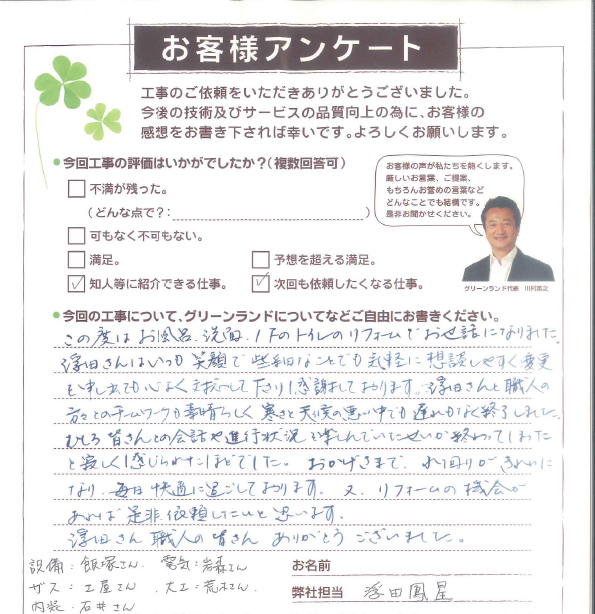 お客様アンケート
工事のご依頼をいただきありがとうございました。
今後の技術及びサービスの品質向上の為に、お客様の
感想をお書き下されば幸いです。よろしくお願いします。
今回工事の評価はいかがでしたか?(複数回答可)
不満が残った。
(どんな点で?: )
可もなく不可もない。
満足。
予想を超える満足。
知人等に紹介できる仕事。
次回も依頼したくなる仕事。
お客様の声が私たちを熱くします。
厳しいお言葉、ご提案、
もちろんお誉めの言葉など
どんなことでも結構です。
是非お聞かせください。
グリーンランド代表 川村英之
今回の工事について、グリーンランドについてなどご自由にお書きください。
この度は お風呂、洗面、1Fのトイレのリフォームでお世話になりました。
浮田さんはいつも笑顔で些細なことでも気軽に相談しやすく変更
を申し出ても心よく対応して下さり感謝しております。浮田さんと職人の
方々とのチームワークも素晴らしく寒さと天候の悪い中でも遅れもなく終了しました。
むしろ皆さんとの会話や進行状況を楽しんでいたせいか終わってしまった
と寂しく感じられたほどでした。おかげさまで、水回りがきれいに
なり、毎日快適に過ごしております。又、リフォームの機会が
あれば是非依頼したいと思います。
浮田さん 職人の皆さん ありがとうございました。
設備:飯塚さん 電気:岩森さん
ガス:土屋さん 大工:荒木さん
内装:石井さん
お名前
弊社担当 浮田鳳星